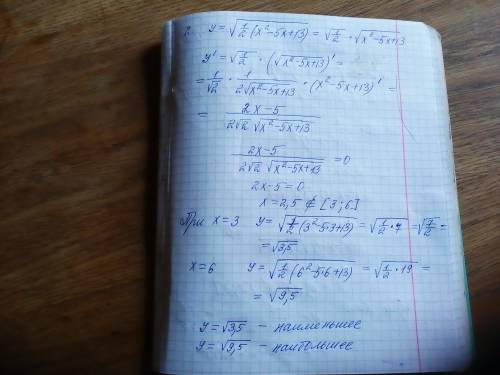 2. y = √(1/2 (x²-5x+13)) = √(1/2) · √(x²-5x+13)
y' = √(1/2) · (√(x²-5x+13))' =
= 1/√2 · 1/(2√(x²-5x+13)) · (x²-5x+13)' =
= (2x-5)/(2√2 √(x²-5x+13))
(2x-5)/(2√2 √(x²-5x+13)) = 0
2x-5=0
x=2,5 ∉ [3;6]
При x=3 y=√(1/2 (3²-5·3+13)) = √(1/2 · 7) = √(7/2) =
= √3,5
x=6 y=√(1/2 (6²-5·6+13)) = √(1/2 · 19) =
= √9,5
y=√3,5 – наименьшее
y=√9,5 – наибольшее